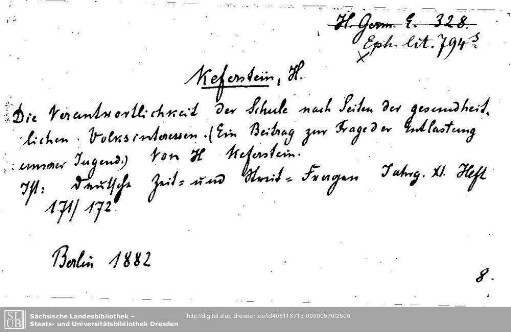 H. Germ. E. 328.
Eph. lit. 794 s
Keferstein, H.
Die Verantwortlichkeit der Schule nach Seiten der gesundheit-
lichen Volksinteressen. (Ein Beitrag zur Frage der Entlastung
unserer Jugend.) Von H Keferstein.
Ist: Deutsche Zeit- und Streit-Fragen Jahrg. XI. Heft
171/172.
Berlin 1882
8.
Sächsische Landesbibliothek –
Staats- und Universitätsbibliothek Dresden